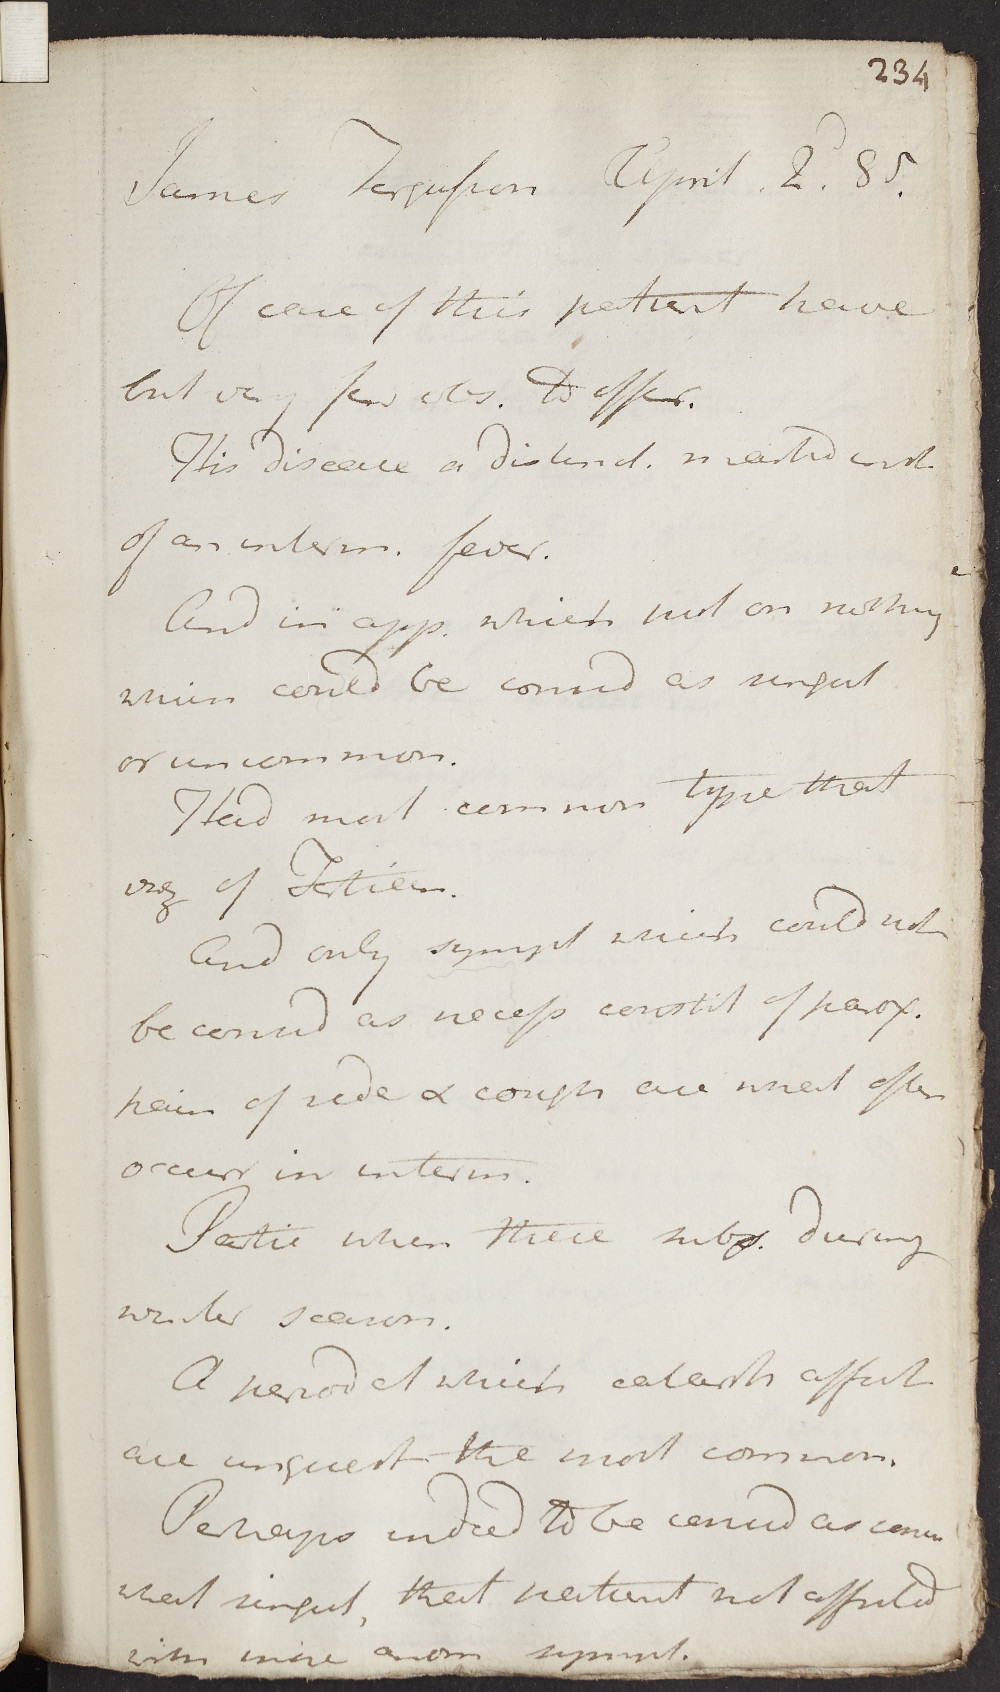 234
James Fergusson April 2d. 85.
Of case of this patient have
but very few obs. to offer.
His disease a distinct. marked inst
of an interm. fever.
And in app. which met on nothing
which could be consid as singul
or uncommon.
Had most common type that
viz of Tertian.
And only sympt which could not
be consid as necess constit of parox.
pain of side & cough are what often
occurr in interm.
Partic when these subs. during
winter season.
A period at which catarrh affect
are unquest the most common.
Perhaps indeed to be consid as
what singul, that patient not affected
with more anom sympt.